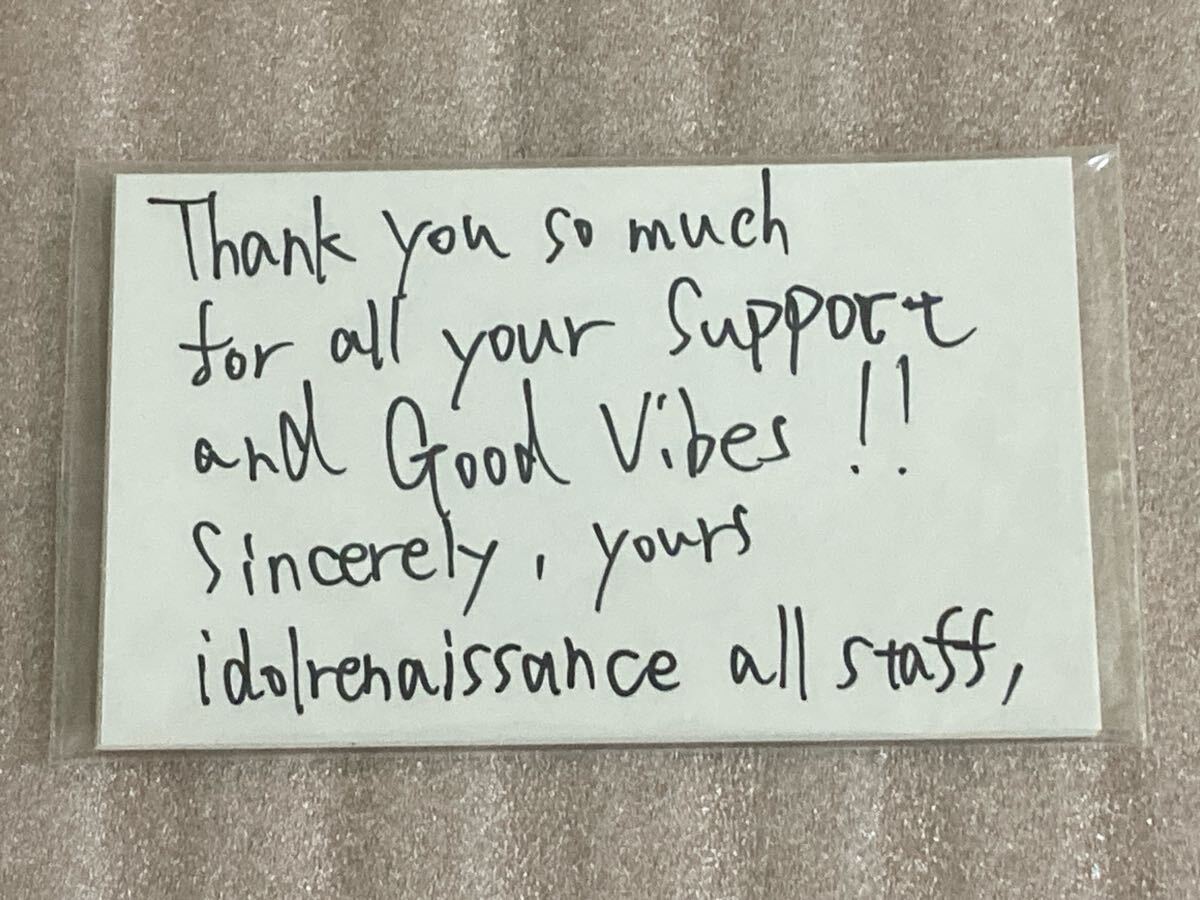 Thank you so much
for all your Support
and Good Vibes !!
Sincerely, yours
idolrenaissance all staff,